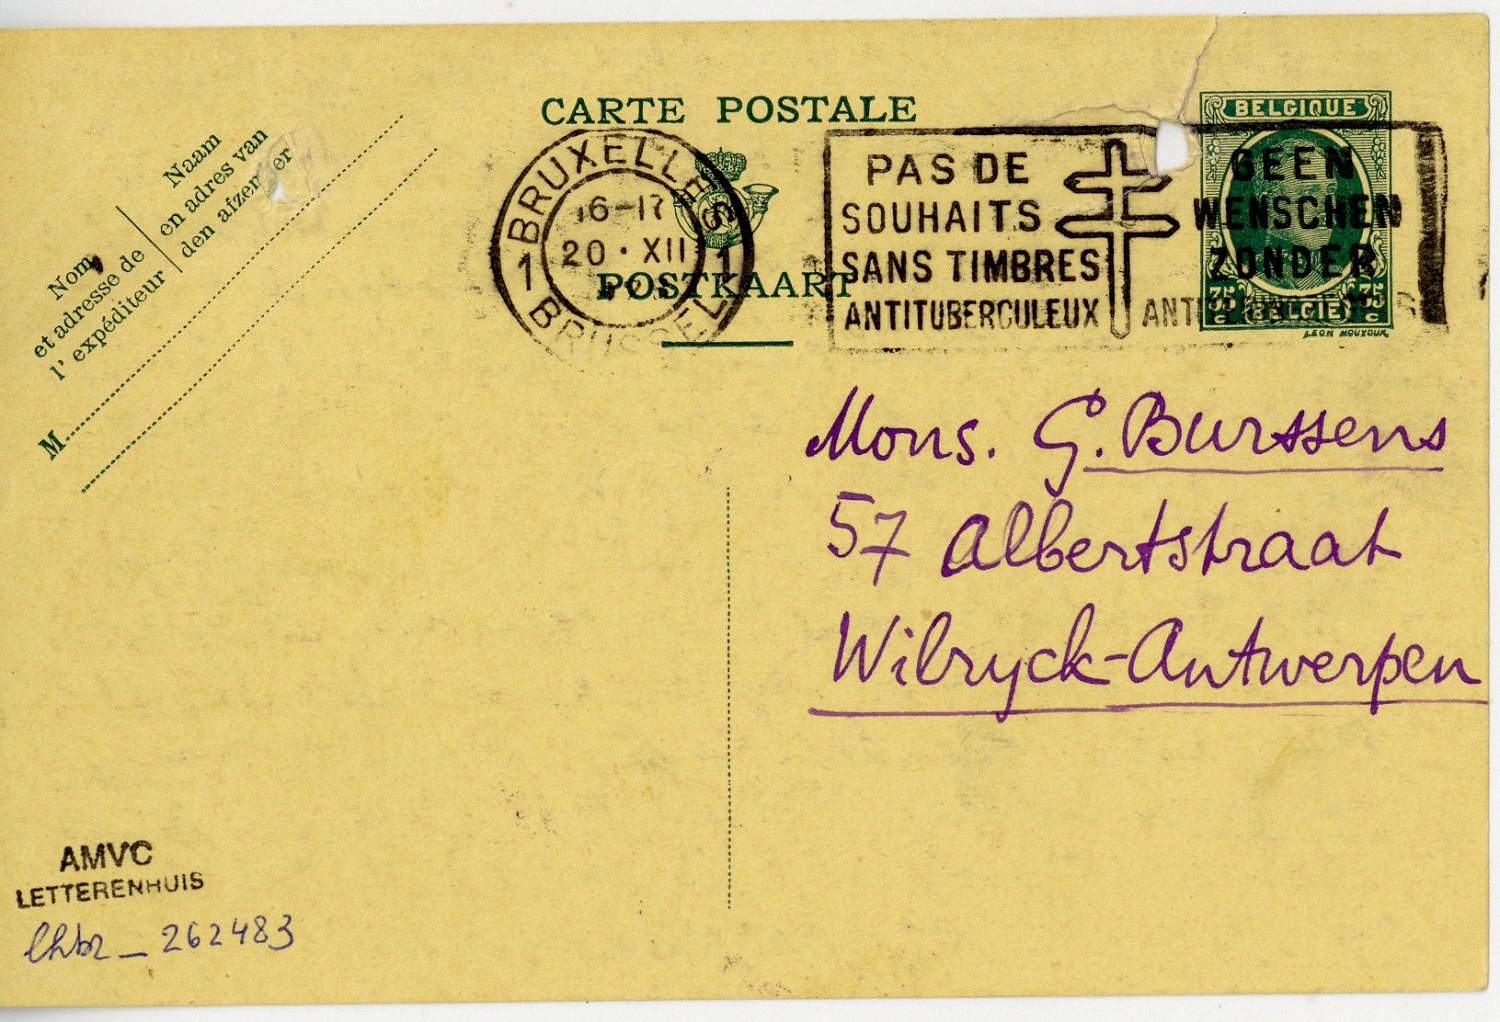 CARTE POSTALE
POSTKAART
Naam
en adres van
den afzender
Nom
et adresse de
l'expéditeur
M
BRUXELLES
1 1
16-17
20·XII
BRUSSEL
PAS DE
SOUHAITS
SANS TIMBRES
ANTITUBERCULEUX
GEEN
WENSCHEN
ZONDER
BELGIQUE
75 c
BELGIE
75 c
Mons. G. Burssens
57 Albertstraat
Wilryck-Antwerpen
AMVC
LETTERENHUIS
lhbr_262483